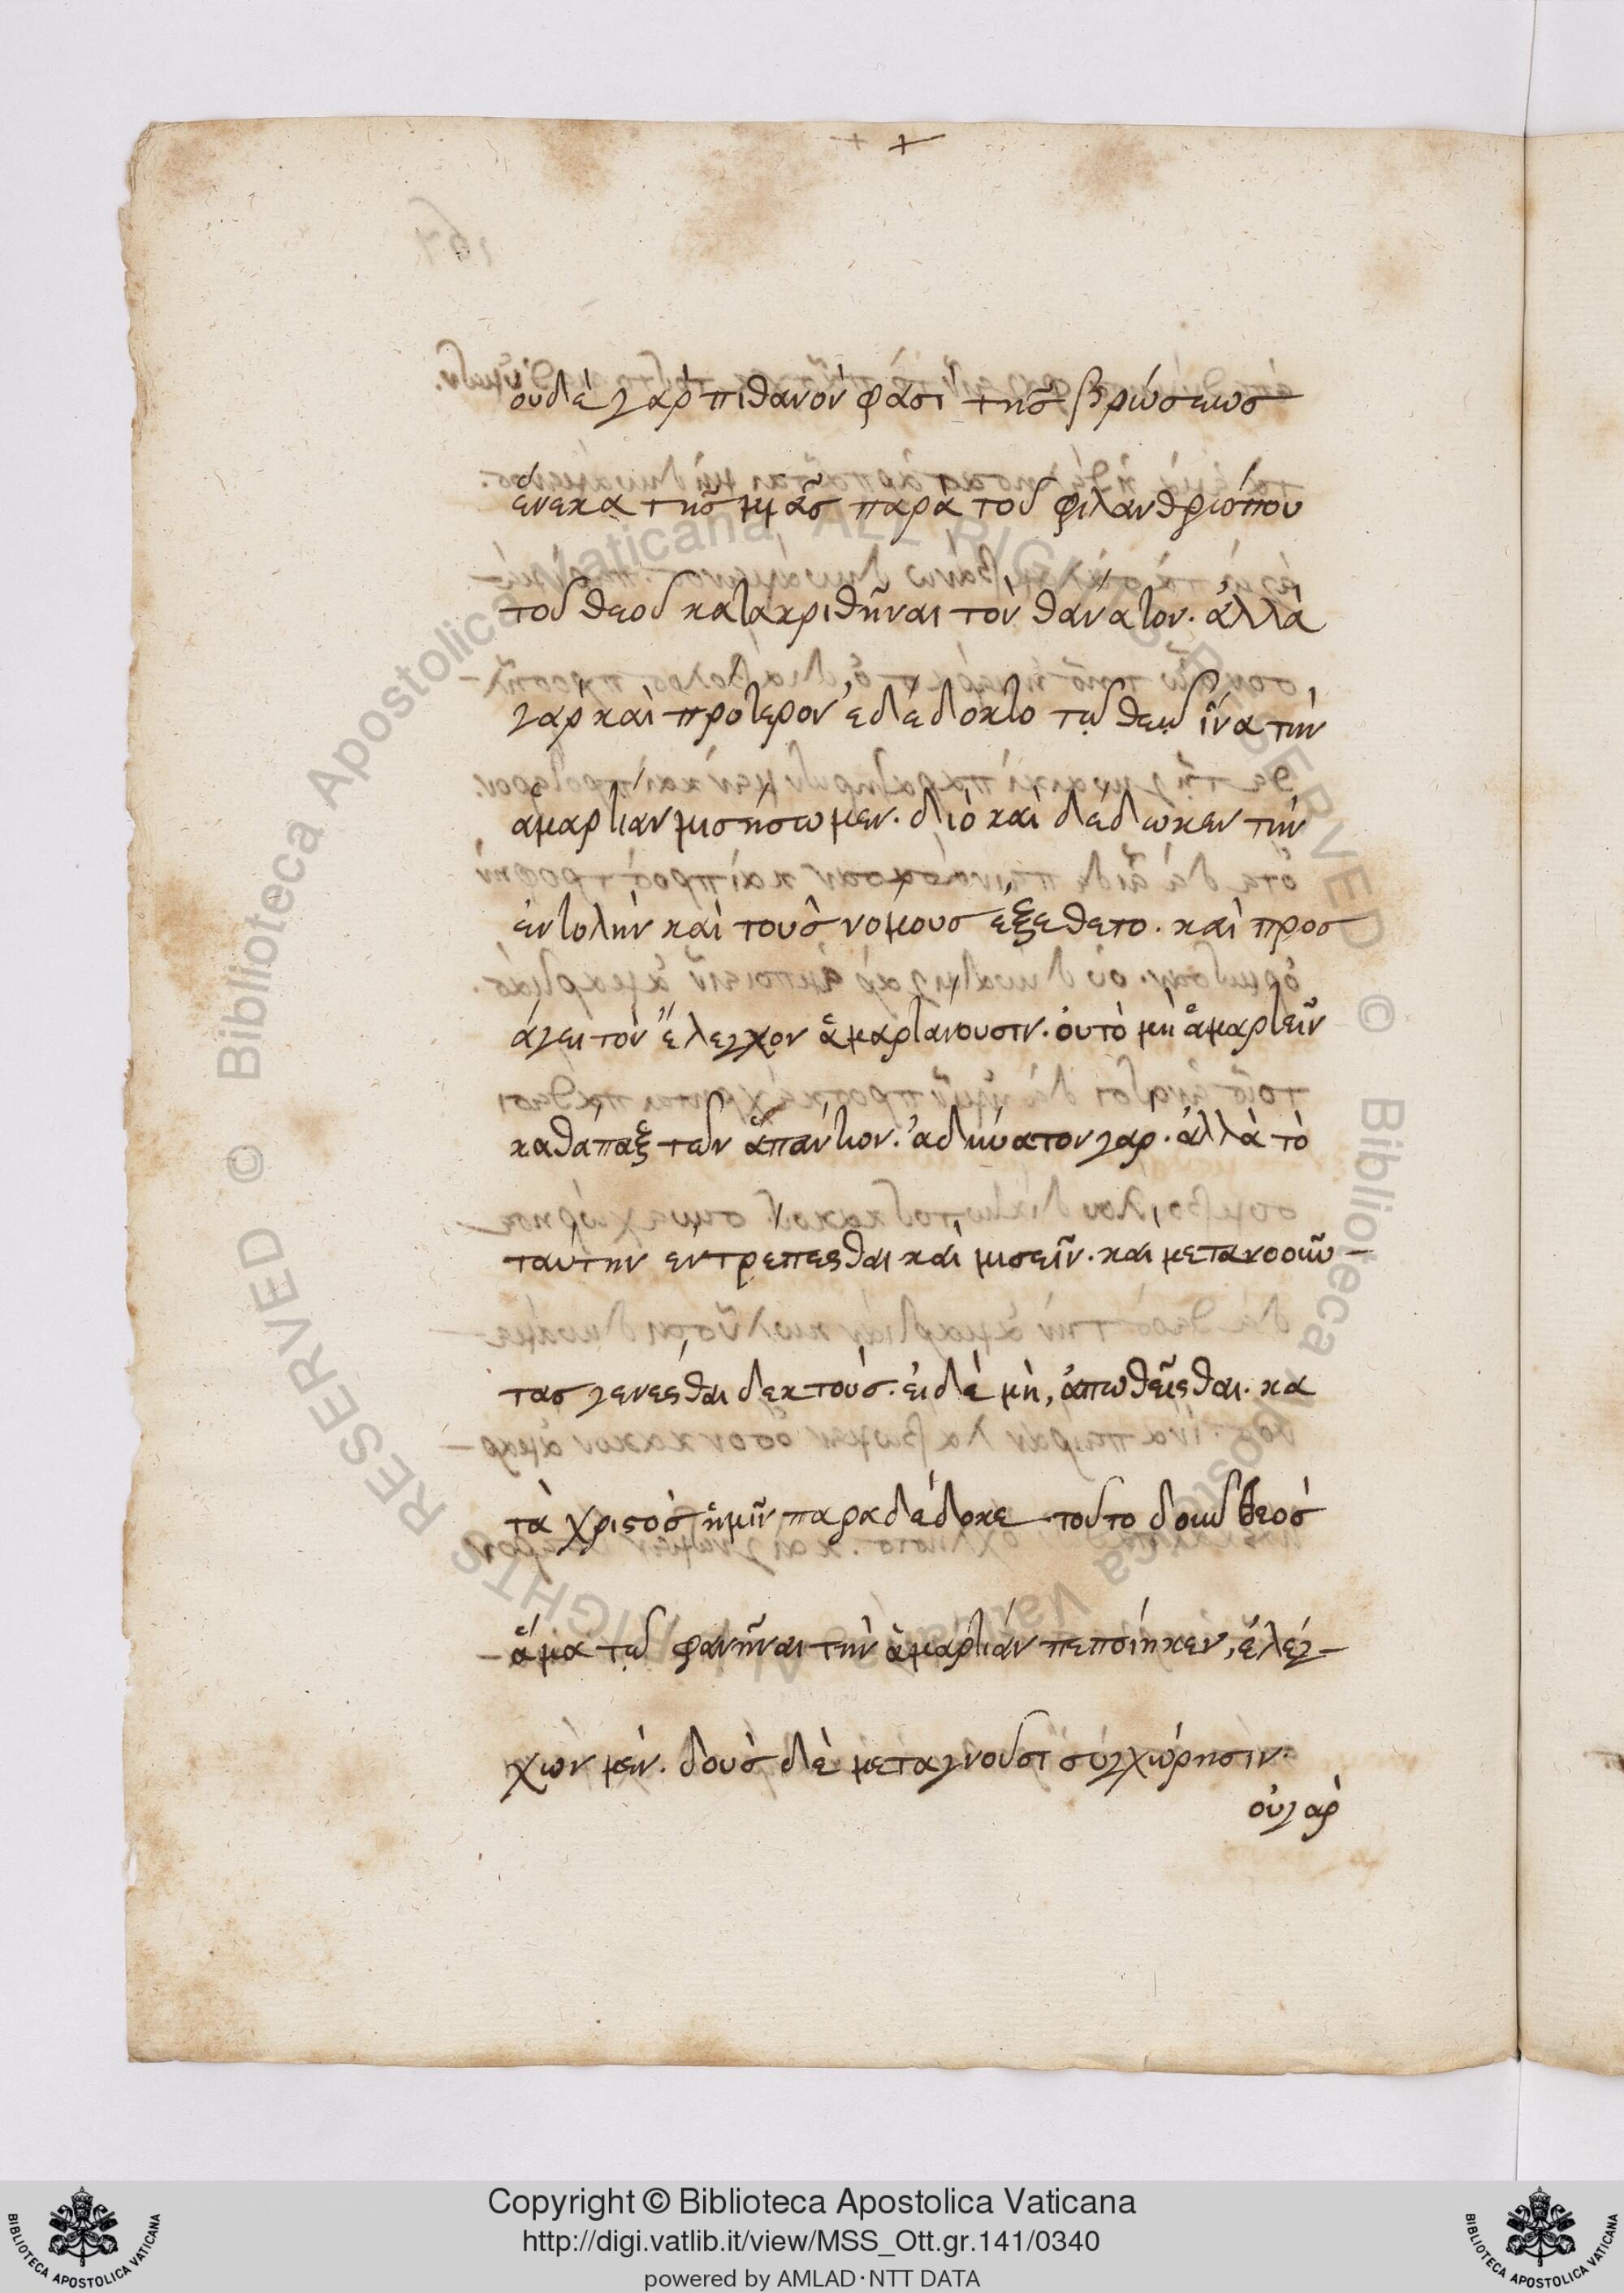 οὐδὲ γὰρ πιθανὸν φάσὶ τῆς βρώσεως
ἕνεκα τῆς μιᾶς παρὰ τοῦ φιλανθρώπου
τοῦ θεοῦ κατακριθῆναι τὸν θάνατον. ἀλλὰ
γὰρ καὶ πρότερον ἐδέδοκτο τῷ θεῷ ἵνα τὴν
ἁμαρτίαν μισήσωμεν. διὸ καὶ δέδωκεν τὴν
ἐντολὴν καὶ τοὺς νόμους ἐξέθετο. καὶ προσ
άγει τὸν ἔλεγχον ἁμαρτάνουσιν. οὐ τὸ μὴ ἁμαρτεῖν
καθάπαξ τῶν ἁπάντων. ἀδύνατον γαρ. ἀλλὰ τὸ
ταύτην ἐντρέπεσθαι καὶ μισεῖν. καὶ μετανοοῦν-
τας γενέσθαι δεκτούς. εἰ δὲ μὴ, ἀπωθεῖσθαι. κα
τὰ χριστὸς ἡμῖν παραδέδοκε τοῦτο δοῦν θεὸς
- ἅμα τῷ φανῆναι τὴν ἁμαρτίαν πεποίηκεν, ἐλέγ-
χων μέν. δοὺς δὲ μεταγνοῦσι συγχώρησιν.
οὐ γὰρ
Copyright © Biblioteca Apostolica Vaticana
http://digi.vatlib.it/view/MSS_Ott.gr.141/0340
powered by AMLAD·NTT DATA
BIBLIOTECA APOSTOLICA VATICANA
BIBLIOTECA APOSTOLICA VATICANA
© Biblioteca Apostolica Vaticana ALL RIGHTS RESERVED © Biblioteca Apostolica Vaticana ALL RIGHTS RESERVED